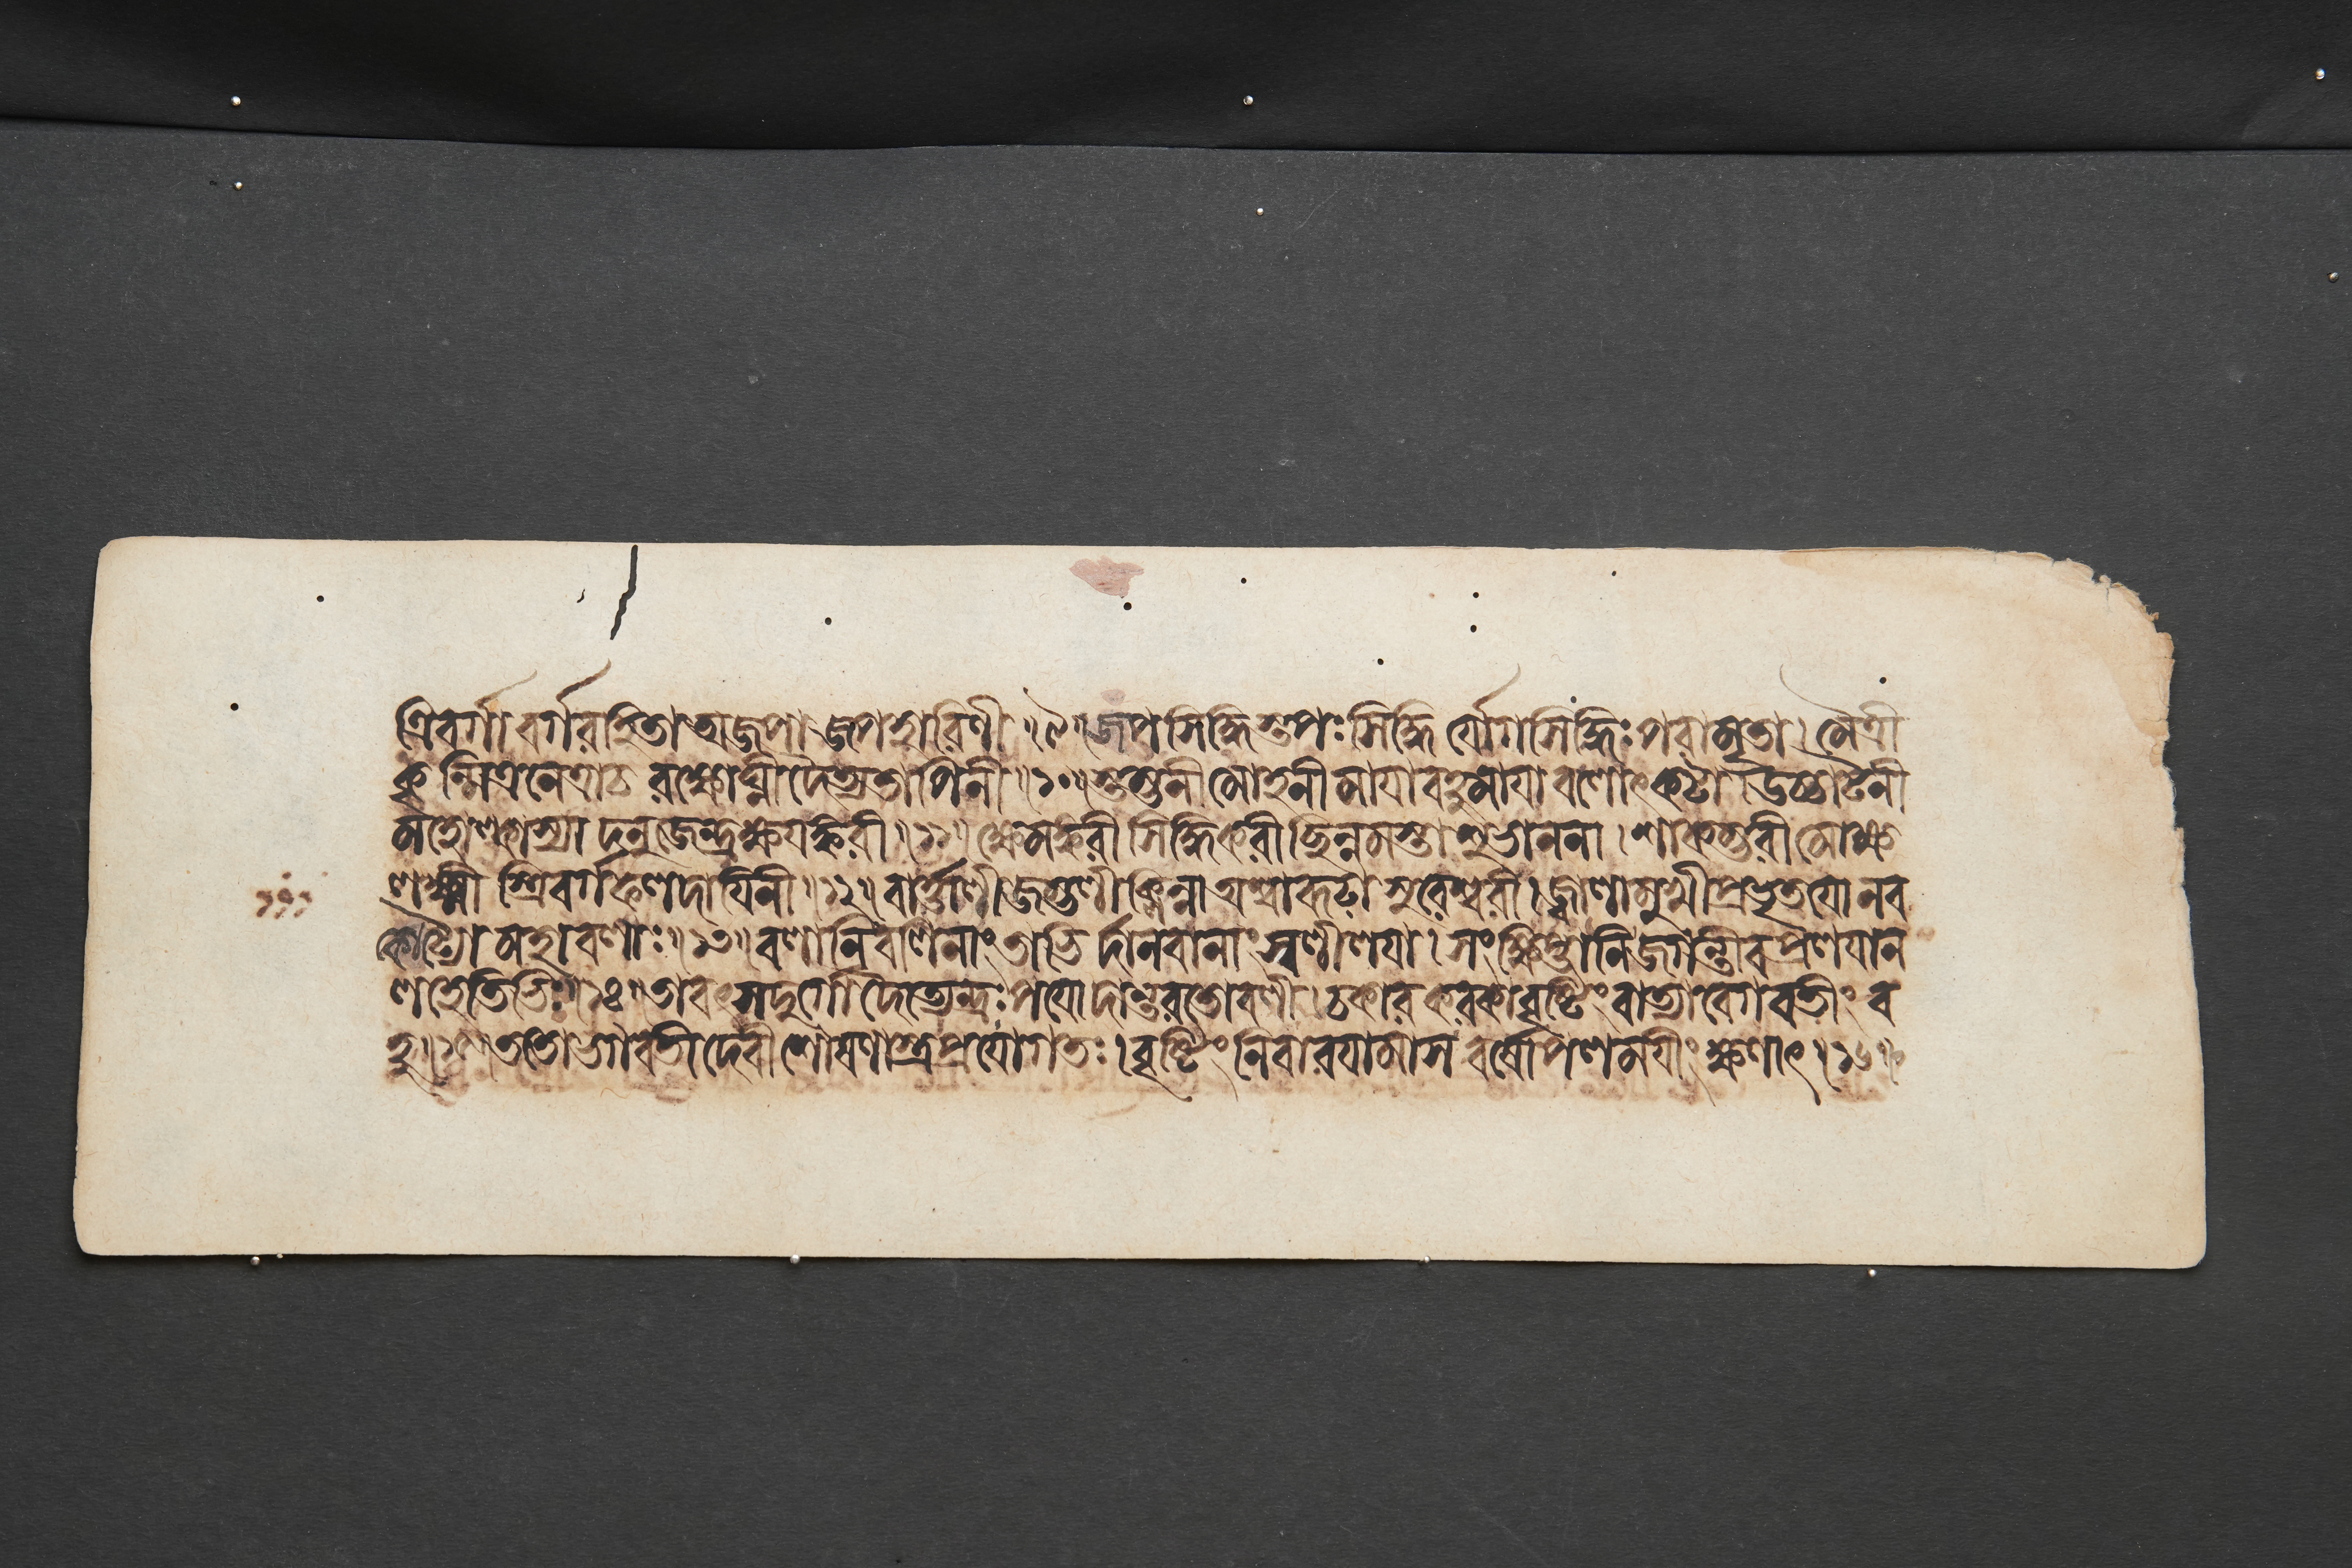 ত্রিবর্গা বর্গরহিতা অজপা জপহারিণী ॥৯॥ জপসিদ্ধিস্তপঃসিদ্ধি র্যোগসিদ্ধিঃ পরামৃতা । মৈত্রী
কৃন্মিত্রনেত্রাচ রক্ষোঘ্নী দৈত্যতাপিনী ॥১০॥ স্তম্ভনী মোহনী মায়া বহুমায়া বলোৎকটা । উচ্চাটনী
মহোল্কাস্যা দনুজেন্দ্রক্ষয়ঙ্করী ॥১১॥ ক্ষেমঙ্করী সিদ্ধিকরী ছিন্নমস্তা শুভাননা । শাকম্ভরী মোক্ষ
লক্ষ্মী স্ত্রিবর্গফলদায়িনী ॥১২॥ বার্ত্তালী জম্ভলী ক্লিন্না অশ্বারূঢ়া সুরেশ্বরী । জ্বালামুখীপ্রভৃতয়ো নব
কোট্যো মহাবলাঃ ॥১৩॥ বলানি বলিনাং তাভি র্দানবানাং স্বলীলয়া । সংক্ষিপ্তানি জগন্তীব প্রলয়ান
লহেতিভিঃ ॥১৪॥ তাবৎ স দুর্গো দৈত্যেন্দ্রঃ পয়োদান্তরতোবলী । চকার করকাবৃষ্টিং বাত্যাবেগবতীং ব
হু ॥১৫॥ ততো ভগবতী দেবী শোষণাস্ত্রপ্রয়োগতঃ । বৃষ্টিং নিবারয়ামাস বর্ষোপলময়ীং ক্ষণাৎ ॥১৬॥